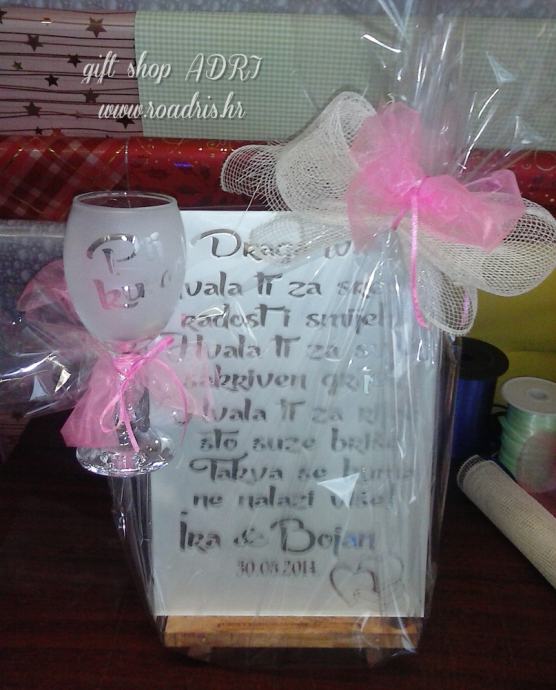 gift shop ADRI
www.roadris.hr
Draga
Hvala ti za
radosti smijeh
Hvala ti za
sakriven
Hvala ti za
što suze briše
Takva se kuma
ne nalazi više!
Ira & Bojan
30.08.2014